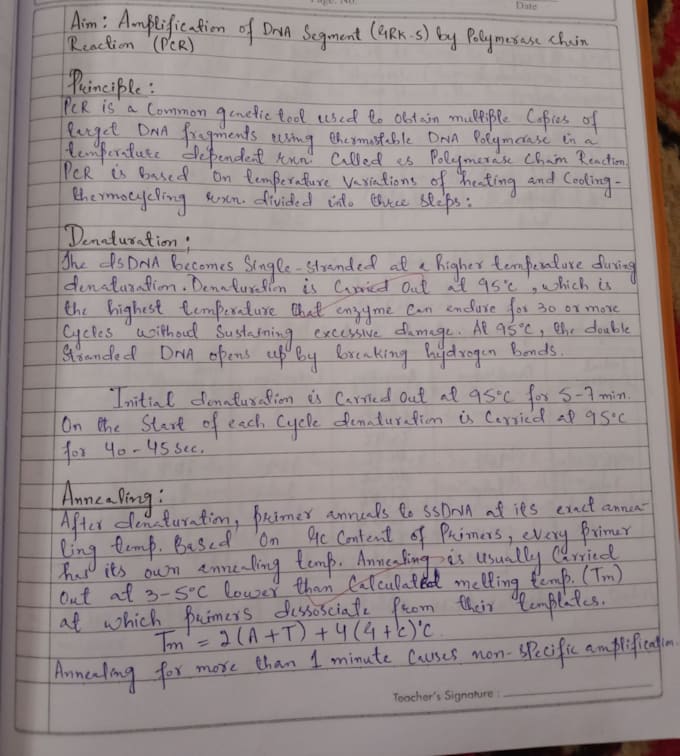 Page. No.
Date
Aim: Amplification of DNA Segment (GRK-5) by Polymerase Chain
Reaction (PCR)
Principle:
PCR is a Common genetic tool used to obtain multiple Copies of
target DNA fragments using thermostable DNA Polymerase in a
temperature dependent rxn Called as Polymerase Chain Reaction.
PCR is based on temperature Variations of heating and Cooling-
thermocycling rxn. divided into three steps:
Denaturation:
The dsDNA becomes Single-stranded at a higher temperature during
denaturation. Denaturation is Carried Out at 95°C, which is
the highest temperature that enzyme Can endure for 30 or more
Cycles without Sustaining excessive damage. At 95°C, the double
Stranded DNA opens up by breaking hydrogen bonds.
Initial denaturation is Carried Out at 95°C for 5-7 min.
On the Start of each Cycle denaturation is Carried at 95°C
for 40-45 Sec.
Annealing:
After denaturation, primer anneals to ssDNA at its exact annea-
ling temp. Based On GC Content of Primers, every primer
has its own annealing temp. Annealing is usually Carried
Out at 3-5°C lower than Calculated melting temp. (Tm)
at which primers dissosciate from their templates.
Tm = 2(A+T) + 4(G+C)°C
Annealing for more than 1 minute Causes non-specific amplification.
Teacher's Signature :